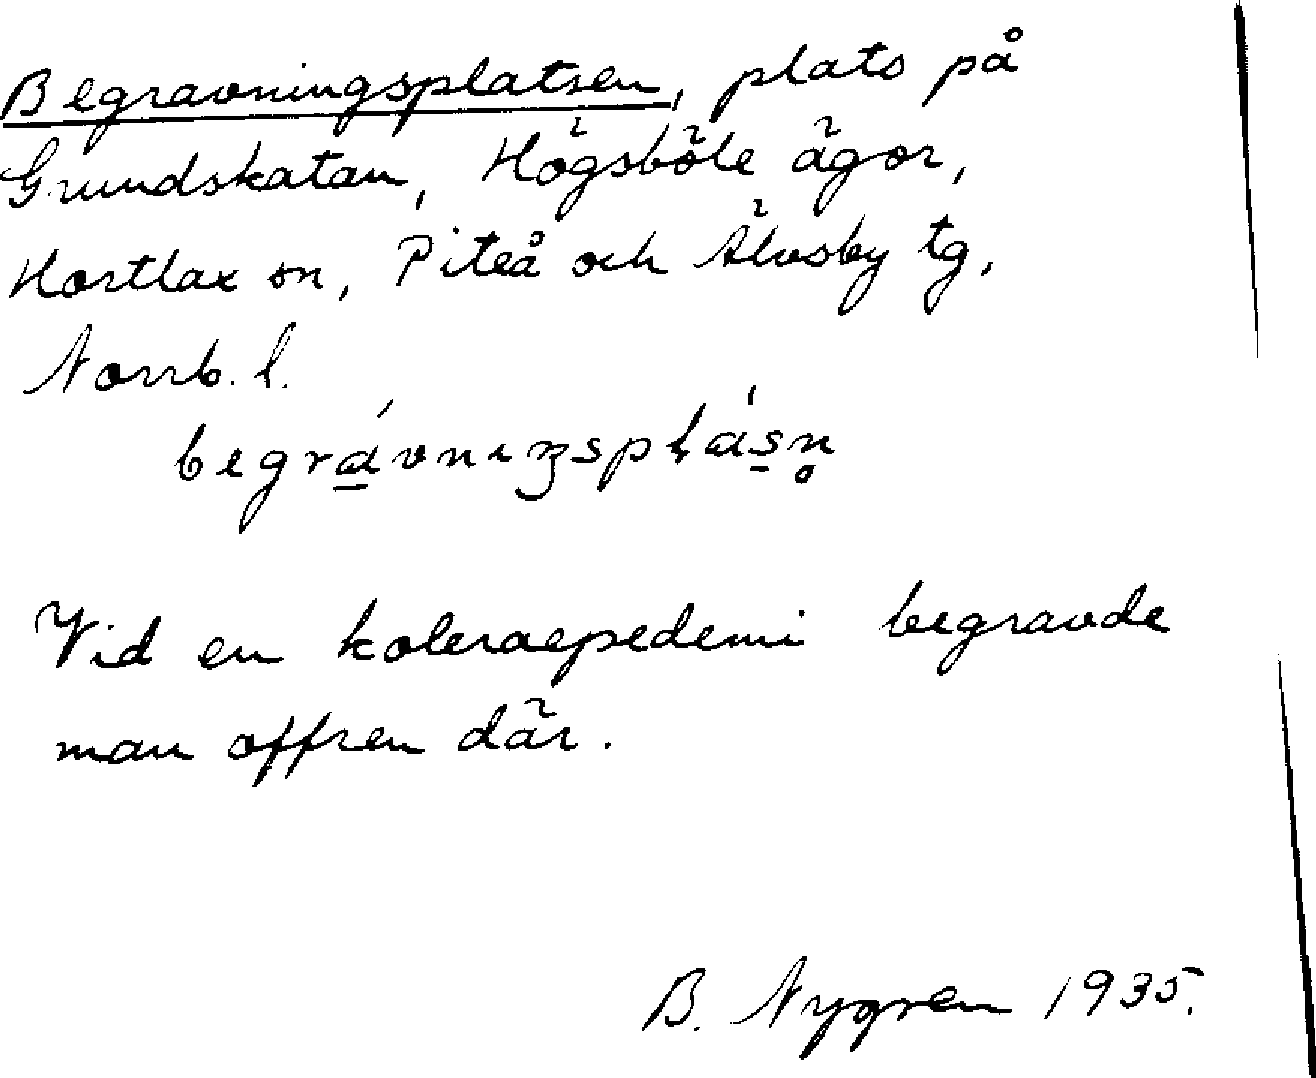 Begravningsplatsen, plats på
Grundskatan, Högsböle ägor,
Hortlax sn, Piteå och Älvsby tg,
Norrb. l.
begrávnıŋsplásn̥
Vid en koleraepedemi begravde
man offren där.
B. Nygren 1935.